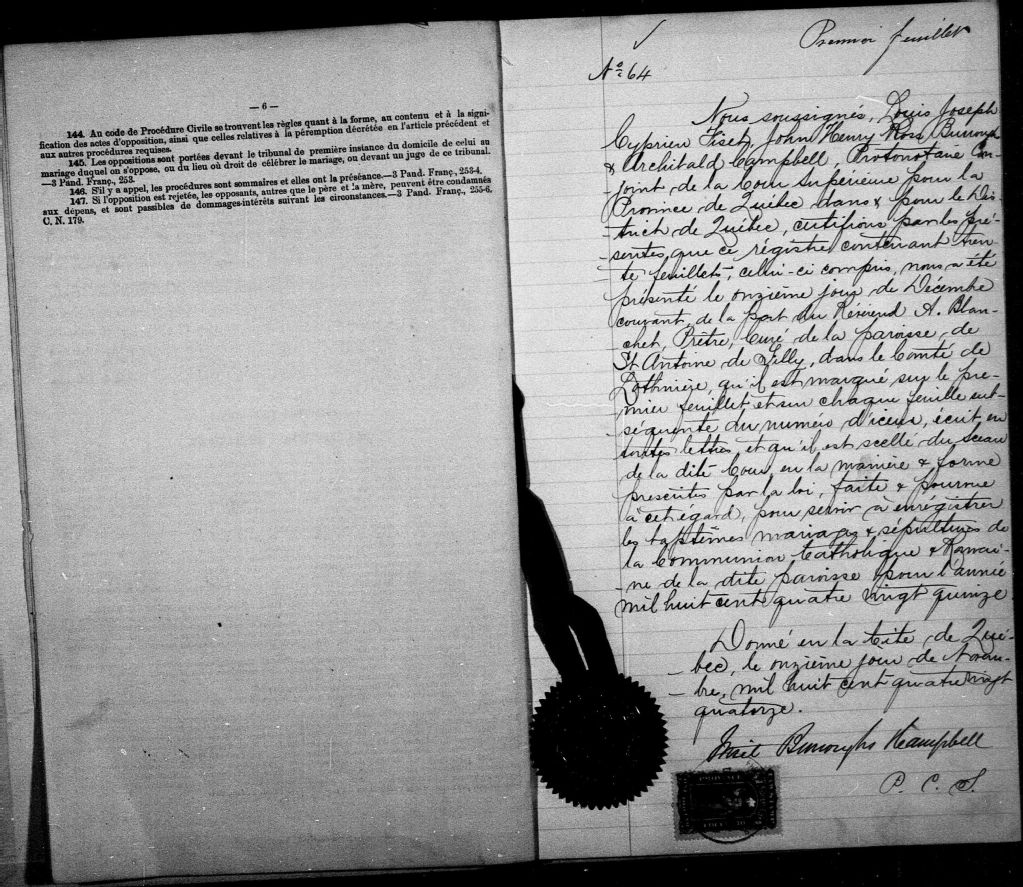 — 6 —
144. Au code de Procédure Civile se trouvent les règles quant à la forme, au contenu et à la signi-
fication des actes d'opposition, ainsi que celles relatives à la péremption décrétée en l'article précédent et
aux autres procédures requises.
145. Les oppositions sont portées devant le tribunal de première instance du domicile de celui au
mariage duquel on s'oppose, ou du lieu où droit de célébrer le mariage, ou devant un juge de ce tribunal.
—3 Pand. Franç., 253.
146. S'il y a appel, les procédures sont sommaires et elles ont la préséance.—3 Pand. Franç., 253-4.
147. Si l'opposition est rejetée, les opposants, autres que le père et la mère, peuvent être condamnés
aux dépens, et sont passibles de dommages-intérêts suivant les circonstances.—3 Pand. Franç., 255-6.
C. N. 179.
Premier feuillet
No 64
Nous soussignés, Louis Joseph
Cyprien Fiset, John Henry Ross Burroughs
& Archibald Campbell, Protonotaire Con-
-joint de la Cour Supérieure pour la
Province de Québec dans & pour le Dis-
-trict de Québec, certifions par les pré-
-sentes que ce régistre contenant tren-
-te feuillets, celui-ci compris, nous a été
présenté le onzième jour de Décembre
courant, de la part du Révérend A. Blan-
-chet, Prêtre, Curé de la paroisse de
St Antoine de Tilly, dans le Comté de
Lotbinière, qu'il est marqué sur le pre-
-mier feuillet et sur chaque feuille sub-
-séquente du numéro d'iceux, écrit en
toutes lettres, et qu'il est scellé du sceau
de la dite Cour, en la manière & forme
prescrites par la loi, faite & pourvue
à cet égard, pour servir à enrégistrer
les baptêmes mariages & sépultures de
la Communion Catholique & Romai-
-ne de la dite paroisse pour l'année
mil huit cent quatre vingt quinze
Donné en la Cité de Qué-
-bec, le onzième jour de
-bre, mil huit cent quatre vingt
quatorze.
Fiset Burroughs & Campbell
P. C. S.